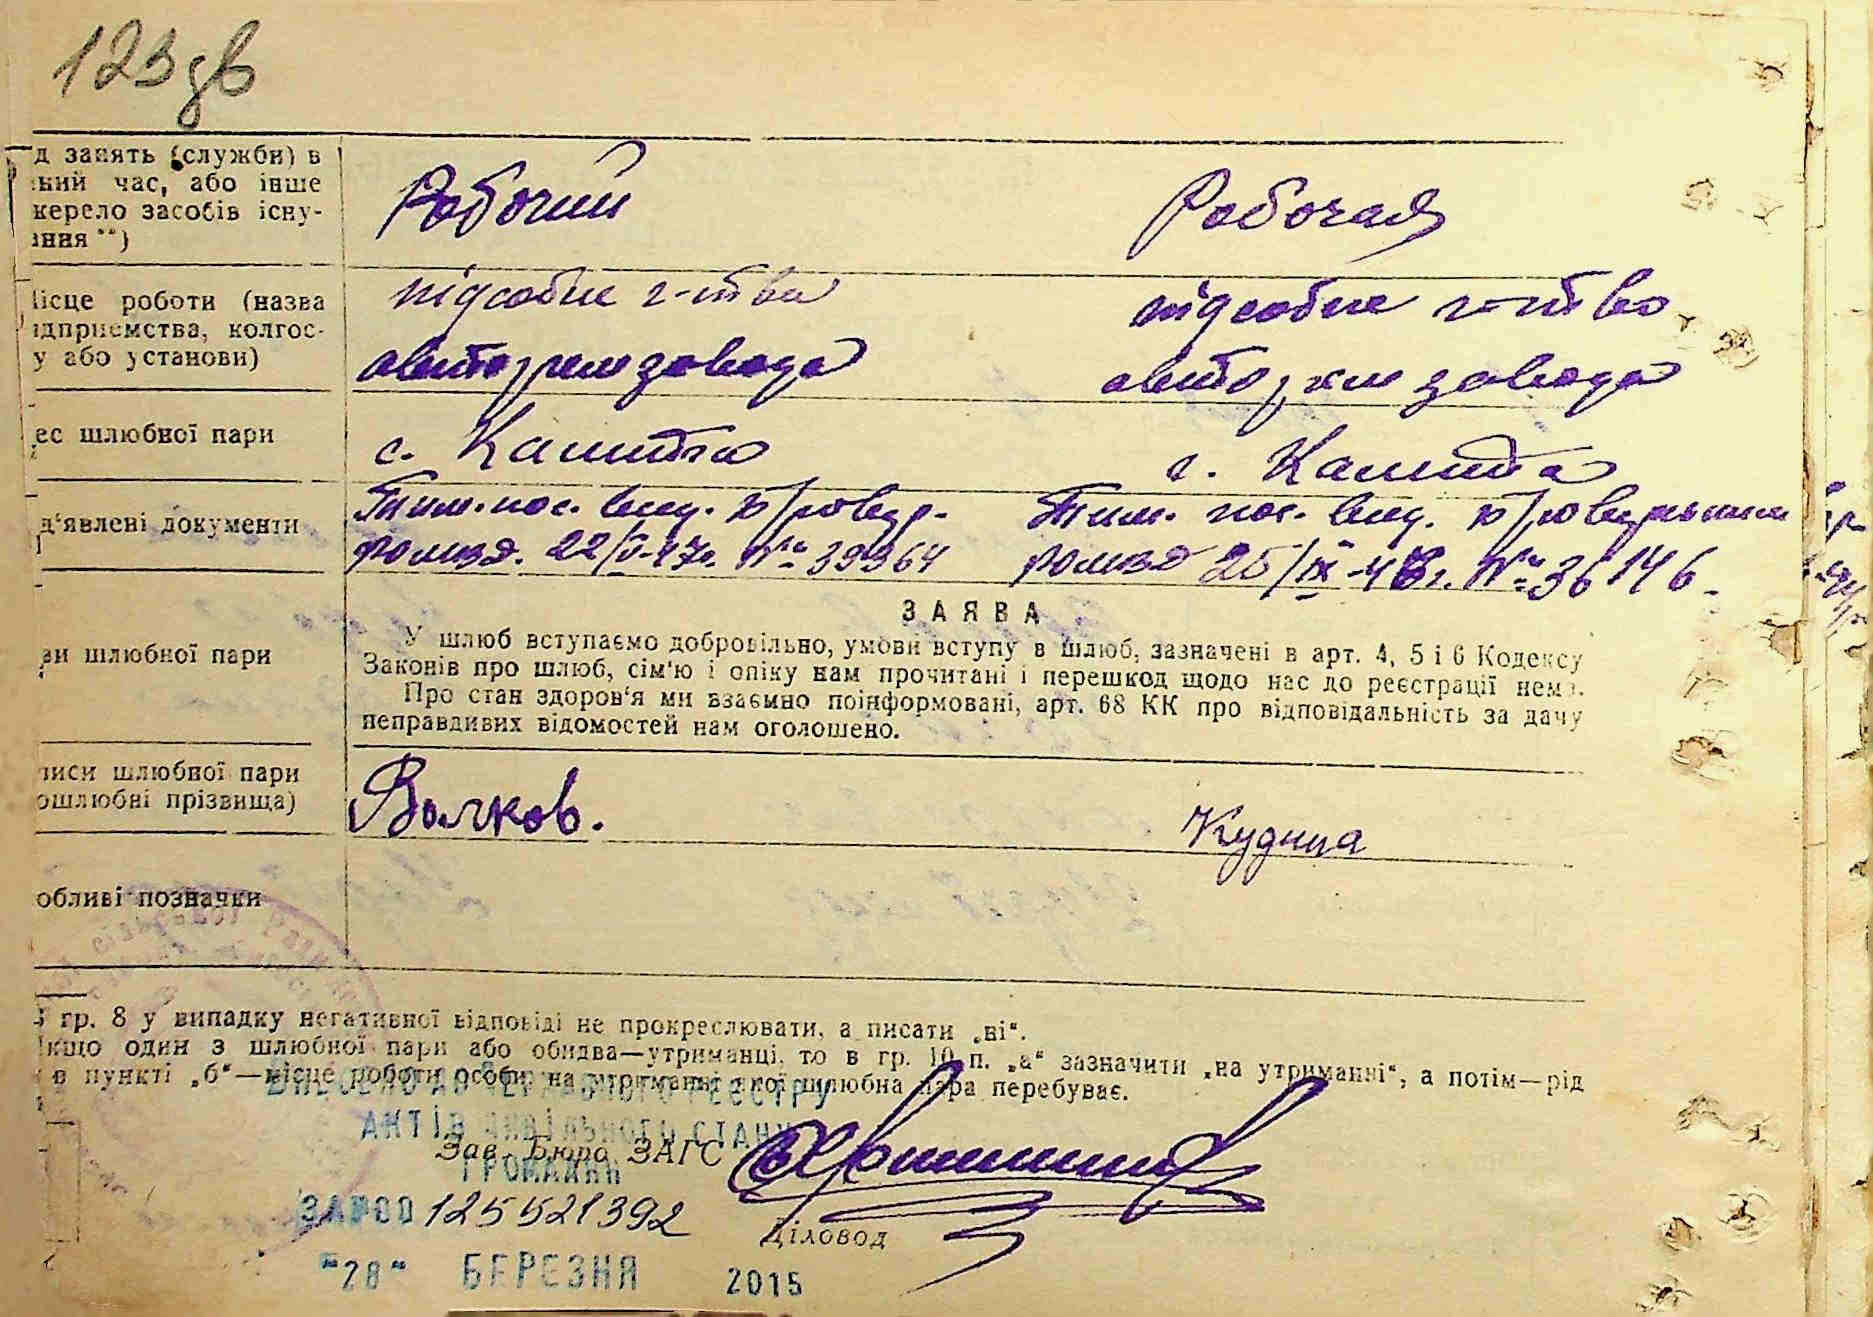 123 зв
д занять (служби) в
ний час, або інше
жерело засобів існу-
ання **)
Рабочий
Рабочая
Місце роботи (назва
ідприємства, колгос-
у або установи)
підсобне г-тва
авторемзавода
підсобне г-тво
авторемзавода
ес шлюбної пари
с. Калита
с. Калита
д'явлені документи
Тим. пос. вид.
22/V-47р. № 39364
Тим. пос. вид.
25/ІХ-46г. № 36146
ви шлюбної пари
ЗАЯВА
У шлюб вступаємо добровільно, умови вступу в шлюб, зазначені в арт. 4, 5 і 6 Кодексу
Законів про шлюб, сім'ю і опіку нам прочитані і перешкод щодо нас до реєстрації нема.
Про стан здоров'я ми взаємно поінформовані, арт. 68 КК про відповідальність за дачу
неправдивих відомостей нам оголошено.
писи шлюбної пари
ошлюбні прізвища)
Волков.
Кудица
обливі позначки
гр. 8 у випадку негативної відповіді не прокреслювати, а писати „ні“.
Якщо один з шлюбної пари або обидва—утриманці, то в гр. 10 п. „а“ зазначити „на утриманні“, а потім—рід
в пункті „б“—місце роботи особи, на утриманні якої шлюбна пара перебуває.
ВНЕСЕНО ДО ДЕРЖАВНОГО РЕЄСТРУ
АКТІВ ЦИВІЛЬНОГО СТАНУ
Зав. Бюро ЗАГС
ГРОМАДЯН
ЗА №00 125521392
Діловод
"28" БЕРЕЗНЯ 2015